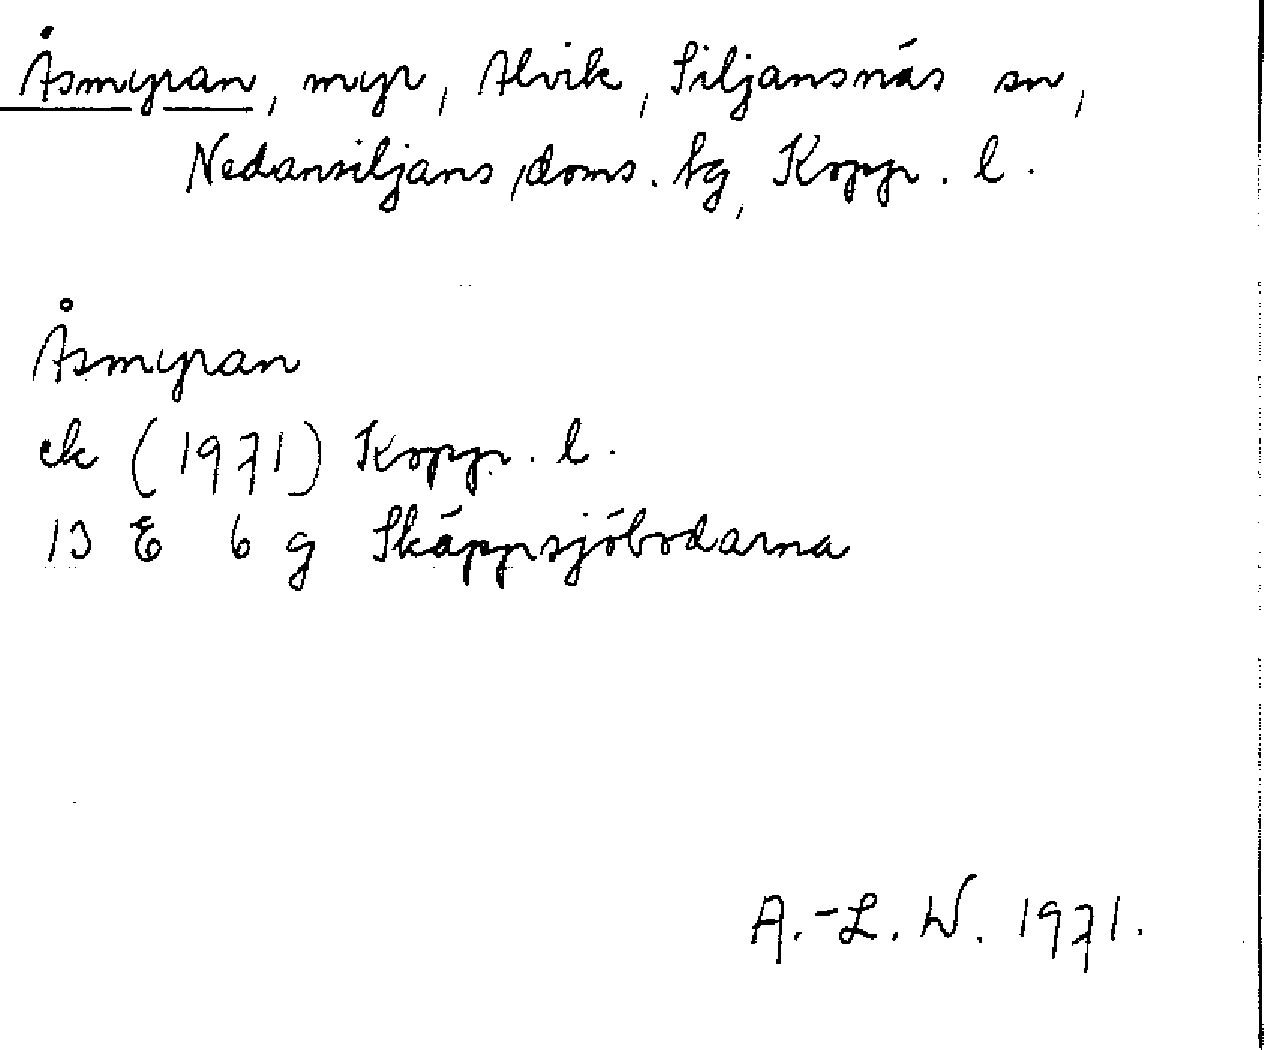 Åsmyran, myr, Alvik, Siljansnäs sn,
Nedansiljans doms. tg, Kopp. l.
Åsmyran
ek (1971) Kopp. l.
13 E 6 g Skäppsjöbodarna
A.-L. W. 1971.